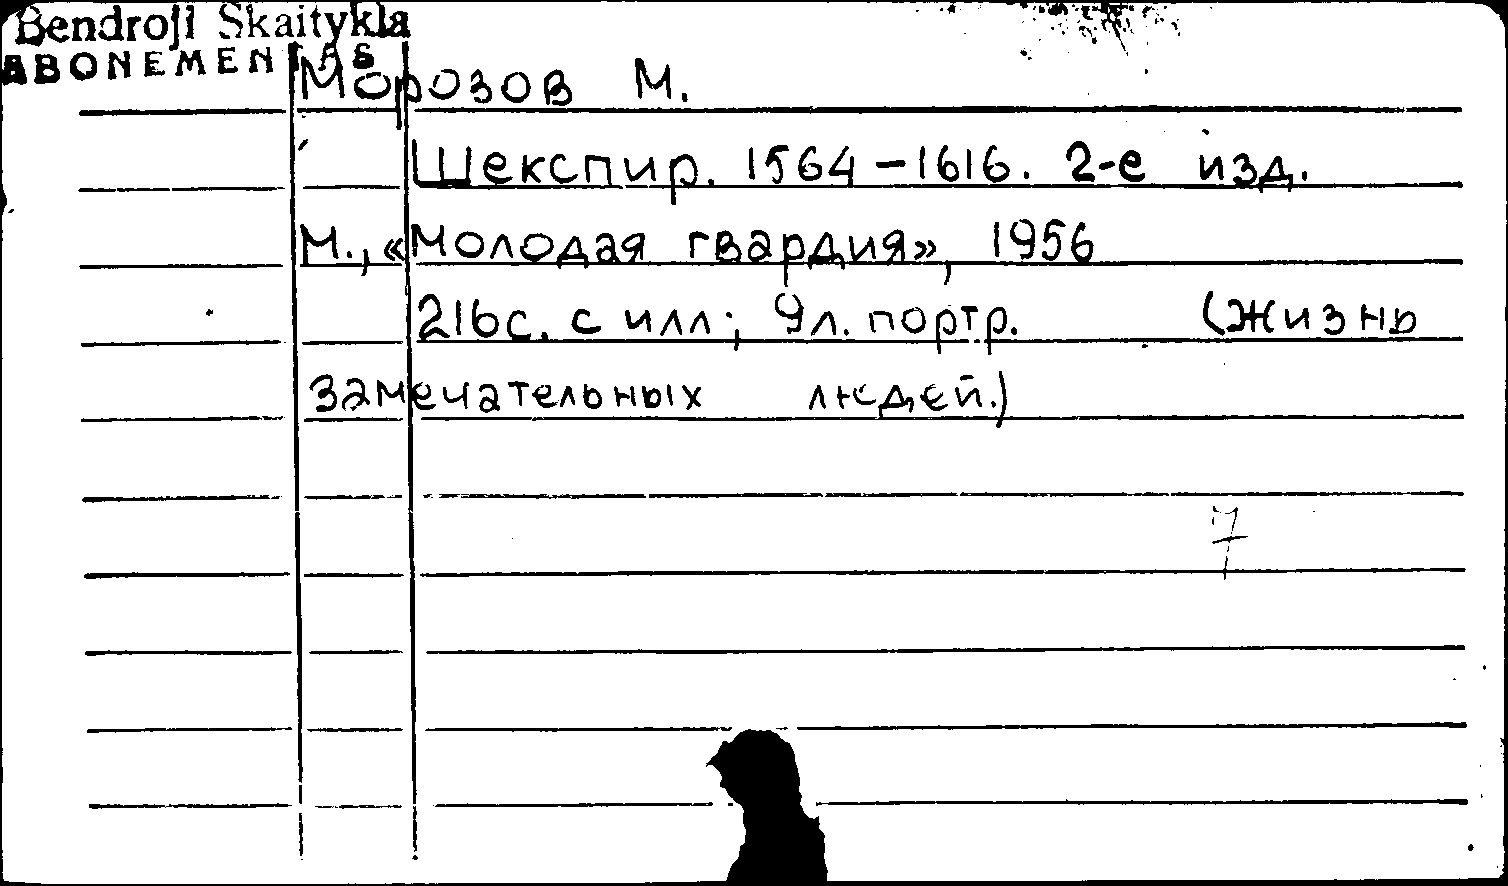 Bendroji Skaitykla
ABONEMENTAS
Морозов М.
Шекспир. 1564-1616. 2-е изд.
М., «Молодая гвардия», 1956
216с. с илл; 9л. портр. (Жизнь
замечательных людей.)
7